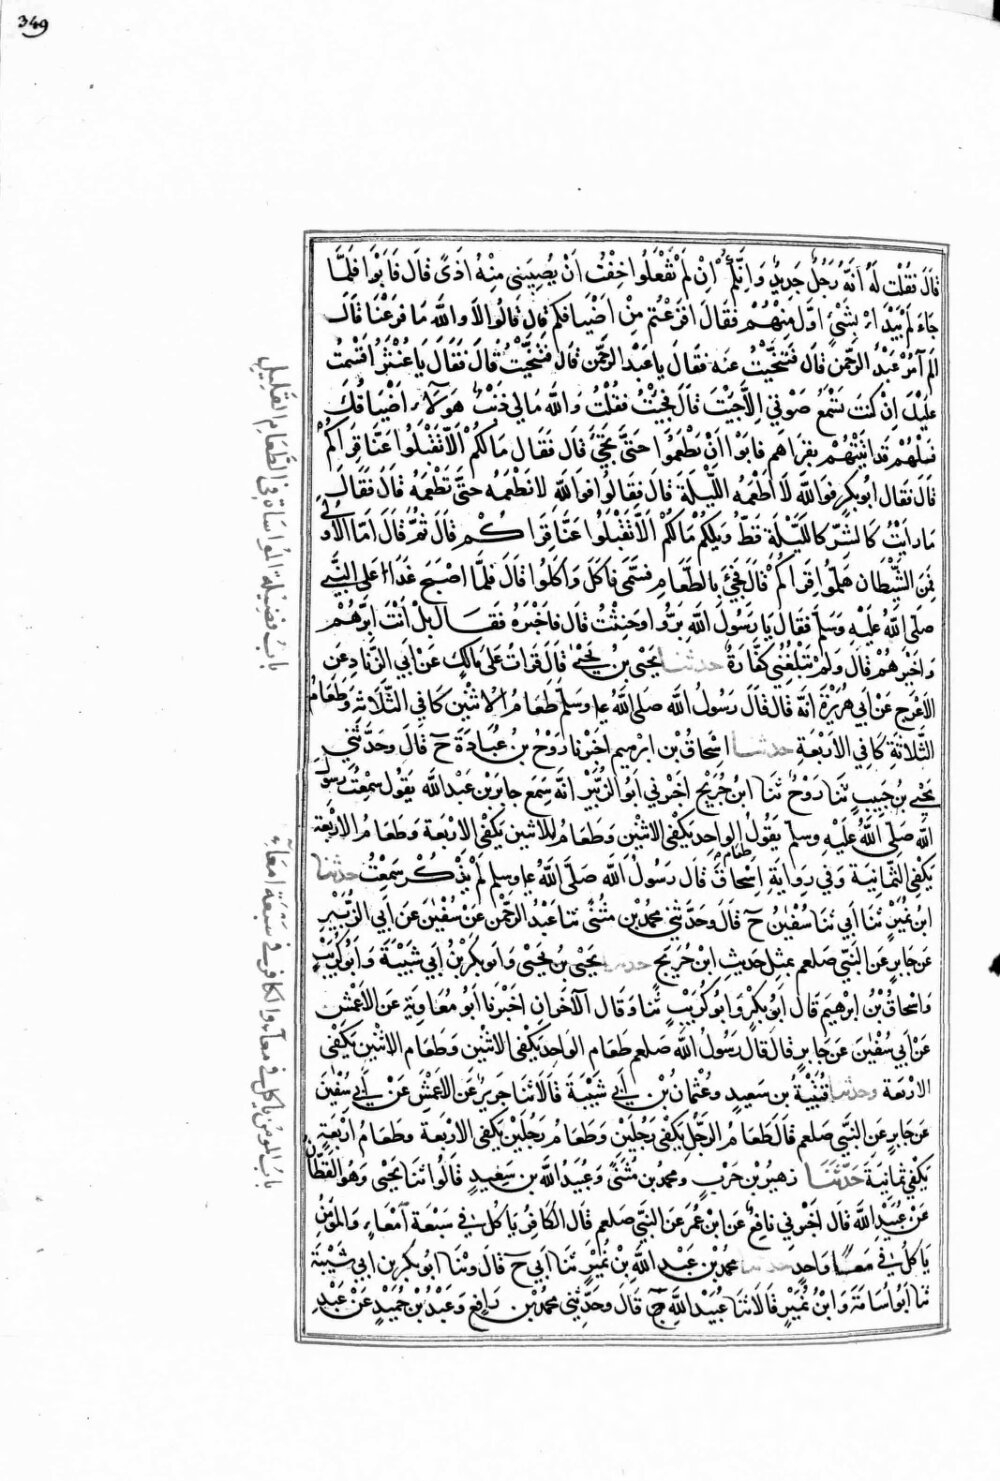 349
قَالَ فَقُلْتُ لَهُ أَنَّهُ رَجُلٌ جَدِيدٌ وَانَّكُمْ اِنْ لَمْ تَفْعَلُوا خِفْتُ اَنْ يُصِيبَنِي مِنْهُ اَذًى قَالَ فَابَوْا فَلَمَّا
جَاءَ لَمْ يَبْدَاْ بِشَيْءٍ اَوَّلَ مِنْهُمْ فَقَالَ افَرَغْتُمْ مِنْ اَضْيَافِكُمْ قَالَ قَالُوا لَا وَاللّٰهِ مَا فَرَغْنَا قَالَ
الَمْ آمُرْ عَبْدَ الرَّحْمٰنِ قَالَ فَتَنَحَّيْتُ عَنْهُ فَقَالَ يَا عَبْدَ الرَّحْمٰنِ قَالَ فَتَنَحَّيْتُ قَالَ فَقَالَ يَا غُنْثَرُ اَقْسَمْتُ
عَلَيْكَ اِنْ كُنْتَ تَسْمَعُ صَوْتِي اِلَّا جِئْتَ قَالَ فَجِئْتُ فَقُلْتُ وَاللّٰهِ مَا لِي ذَنْبٌ هَؤُلَاءِ اَضْيَافُكَ
فَسَلْهُمْ قَدْ اَتَيْتُهُمْ بِقِرَاهُمْ فَابَوْا اَنْ يَطْعَمُوا حَتَّى تَجِيَ قَالَ فَقَالَ مَالَكُمْ اَلَّا تَقْبَلُوا عَنَّا قِرَاكُمْ
قَالَ فَقَالَ اَبُو بَكْرٍ فَوَاللّٰهِ لَا اَطْعَمُهُ اللَّيْلَةَ قَالَ فَقَالُوا فَوَاللّٰهِ لَا نَطْعَمُهُ حَتَّى تَطْعَمَهُ قَالَ فَقَالَ
مَا رَاَيْتُ كَالشَّرِّ كَاللَّيْلَةِ قَطُّ وَيْلَكُمْ مَالَكُمْ اَلَّا تَقْبَلُوا عَنَّا قِرَاكُمْ قَالَ ثُمَّ قَالَ اَمَّا الْاُولَى
فَمِنَ الشَّيْطَانِ هَلُمُّوا قِرَاكُمْ قَالَ فَجِيءَ بِالطَّعَامِ فَسَمَّى فَاَكَلَ وَاَكَلُوا قَالَ فَلَمَّا اَصْبَحَ غَدَا عَلَى النَّبِيِّ
صَلَّى اللّٰهُ عَلَيْهِ وَسَلَّمَ فَقَالَ يَا رَسُولَ اللّٰهِ بَرُّوا وَحَنِثْتُ قَالَ فَاَخْبَرَهُ فَقَالَ بَلْ اَنْتَ اَبَرُّهُمْ
وَاَخْيَرُهُمْ قَالَ وَلَمْ تَبْلُغْنِي كَفَّارَةٌ حدثنا يَحْيَى بْنُ يَحْيَى قَالَ قَرَاْتُ عَلَى مَالِكٍ عَنْ اَبِي الزِّنَادِ عَنِ
الْاَعْرَجِ عَنْ اَبِي هُرَيْرَةَ اَنَّهُ قَالَ قَالَ رَسُولُ اللّٰهِ صَلَّى اللّٰهُ ع‍ وَسَلَّمَ طَعَامُ الْاِثْنَيْنِ كَافِي الثَّلَاثَةِ وَطَعَامُ
الثَّلَاثَةِ كَافِي الْاَرْبَعَةِ حدثنا اِسْحَاقُ بْنُ اِبْرٰهِيمَ اَخْبَرَنَا رَوْحُ بْنُ عُبَادَةَ ح قَالَ وَحَدَّثَنِي
يَحْيَى بْنُ حَبِيبٍ ثَنَا رَوْحٌ ثَنَا ابْنُ جُرَيْجٍ اَخْبَرَنِي اَبُو الزُّبَيْرِ اَنَّهُ سَمِعَ جَابِرَ بْنَ عَبْدِ اللّٰهِ يَقُولُ سَمِعْتُ رَسُولَ
اللّٰهِ صَلَّى اللّٰهُ عَلَيْهِ وَسَلَّمَ يَقُولُ طعام الْوَاحِدِ يَكْفِي الِاثْنَيْنِ وَطَعَامُ الِاثْنَيْنِ يَكْفِي الْاَرْبَعَةَ وَطَعَامُ الْاَرْبَعَةِ
يَكْفِي الثَّمَانِيَةَ وَفِي رِوَايَةِ اِسْحَاقَ قَالَ رَسُولُ اللّٰهِ صَلَّى اللّٰهُ ع‍ وسلم لَمْ يَذْكُرْ سَمِعْتُ حدثنا
ابْنُ نُمَيْرٍ ثَنَا اَبِي ثَنَا سُفْيٰنُ ح قَالَ وَحَدَّثَنِي مُحَمَّدُ بْنُ مُثَنًّى ثَنَا عَبْدُ الرَّحْمٰنِ عَنْ سُفْيٰنَ عَنْ اَبِي الزُّبَيْرِ
عَنْ جَابِرٍ عَنِ النَّبِيِّ صلعم بِمِثْلِ حَدِيثِ ابْنِ جُرَيْجٍ حدثنا يَحْيَى بْنُ يَحْيَى وَاَبُو بَكْرِ بْنُ اَبِي شَيْبَةَ وَاَبُو كُرَيْبٍ
وَاِسْحَاقُ بْنُ اِبْرٰهِيمَ قَالَ اَبُو بَكْرٍ وَاَبُو كُرَيْبٍ ثَنَا وَقَالَ الْآخَرَانِ اَخْبَرَنَا اَبُو مُعَاوِيَةَ عَنِ الْاَعْمَشِ
عَنْ اَبِي سُفْيٰنَ عَنْ جَابِرٍ قَالَ قَالَ رَسُولُ اللّٰهِ صلعم طَعَامُ الْوَاحِدِ يَكْفِي الِاثْنَيْنِ وَطَعَامُ الِاثْنَيْنِ يَكْفِي
الْاَرْبَعَةَ وحدثنا قُتَيْبَةُ بْنُ سَعِيدٍ وَعُثْمَانُ بْنُ اَبِي شَيْبَةَ قَالَا ثَنَا جَرِيرٌ عَنِ الْاَعْمَشِ عَنْ اَبِي سُفْيٰنَ
عَنْ جَابِرٍ عَنِ النَّبِيِّ صلعم قَالَ طَعَامُ الرَّجُلِ يَكْفِي رَجُلَيْنِ وَطَعَامُ رَجُلَيْنِ يَكْفِي الْاَرْبَعَةَ وَطَعَامُ اَرْبَعَةٍ
يَكْفِي ثَمَانِيَةً حَدَّثَنَا زُهَيْرُ بْنُ حَرْبٍ وَمُحَمَّدُ بْنُ مُثَنًّى وَعُبَيْدُ اللّٰهِ بْنُ سَعِيدٍ قَالُوا ثَنَا يَحْيَى وَهُوَ الْقَطَّانُ
عَنْ عُبَيْدِ اللّٰهِ قَالَ اَخْبَرَنِي نَافِعٌ عَنِ ابْنِ عُمَرَ عَنِ النَّبِيِّ صلعم قَالَ الْكَافِرُ يَاْكُلُ فِي سَبْعَةِ اَمْعَاءٍ وَالْمُؤْمِنُ
يَاْكُلُ فِي مِعًا وَاحِدٍ حدثنا مُحَمَّدُ بْنُ عَبْدِ اللّٰهِ بْنِ نُمَيْرٍ ثَنَا اَبِي ح قَالَ وَثَنَا اَبُو بَكْرِ بْنُ اَبِي شَيْبَةَ
ثَنَا اَبُو اُسَامَةَ وَابْنُ نُمَيْرٍ قَالَا ثَنَا عُبَيْدُ اللّٰهِ ح قَالَ وَحَدَّثَنِي مُحَمَّدُ بْنُ رَافِعٍ وَعَبْدُ بْنُ حُمَيْدٍ عَنْ عَبْدِ
بَابُ فَضِيلَةِ الْمُوَاسَاةِ فِي الطَّعَامِ الْقَلِيلِ
بَابُ الْمُؤْمِنُ يَاْكُلُ فِي مِعَاءٍ وَالْكَافِرُ فِي سَبْعَةِ اَمْعَاءٍ